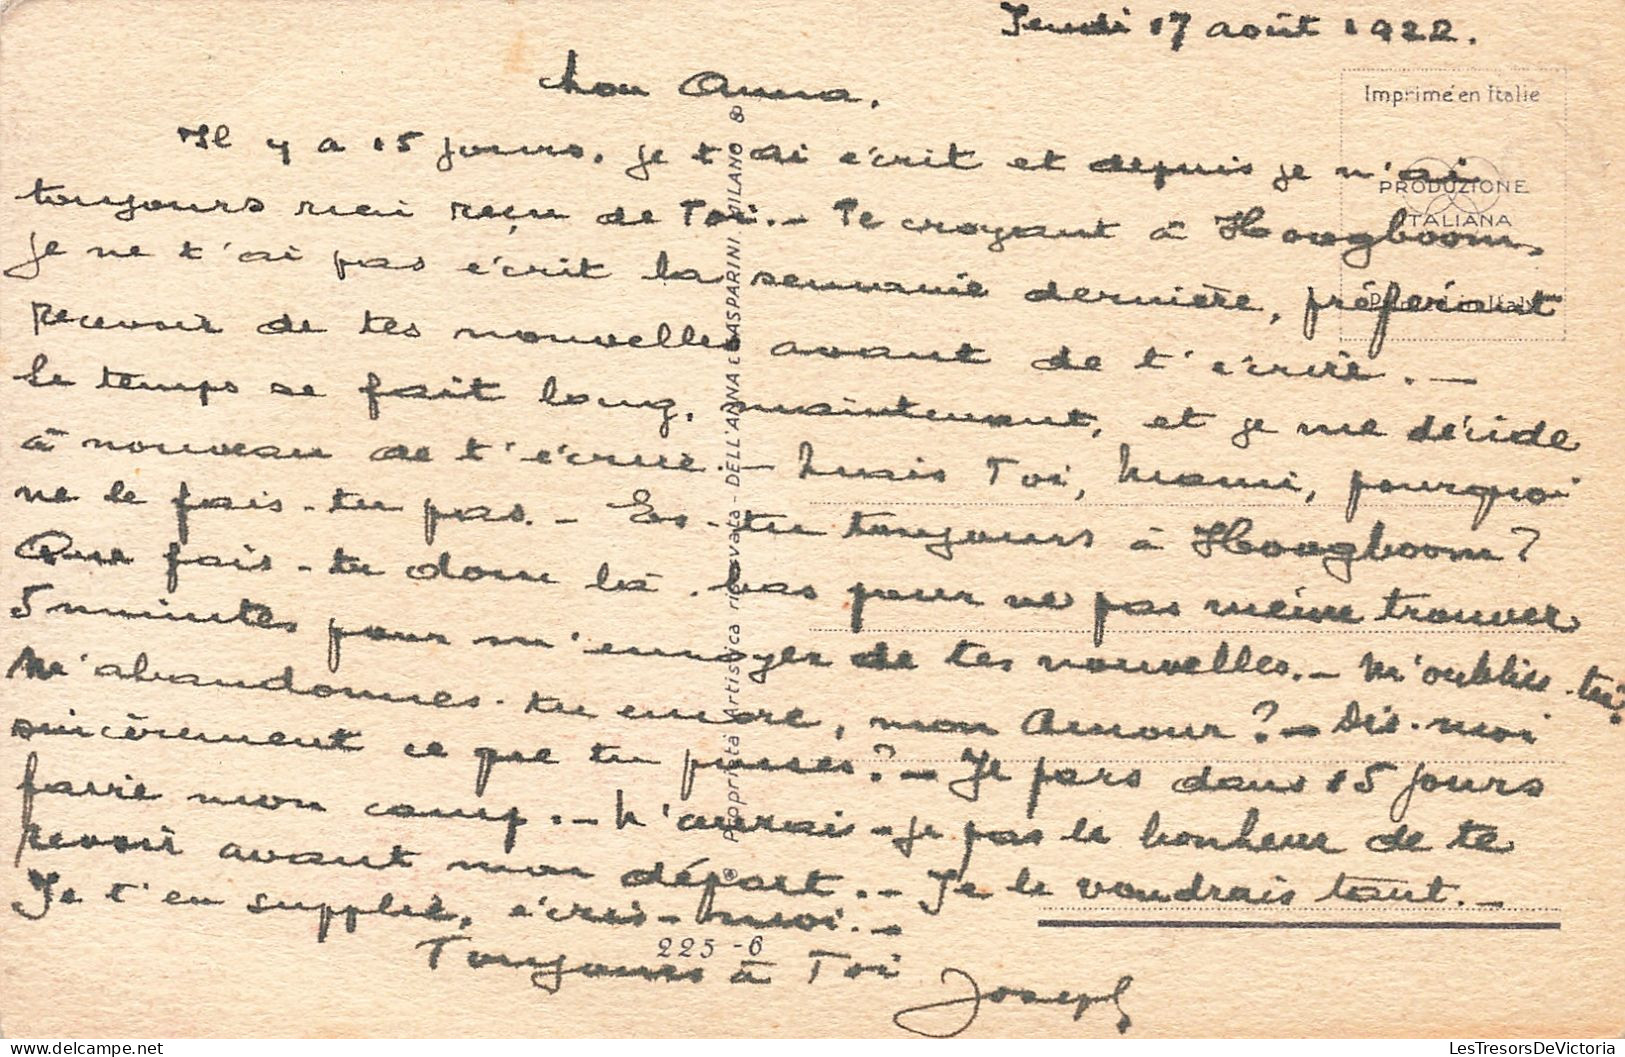 Jeudi 17 août 1922.
Mon Anna.
Imprimé en Italie
PRODUZIONE
ITALIANA
Printed in Italy
Il y a 15 jours, je t'ai écrit et depuis je n'ai
toujours rien reçu de Toi. - Te croyant à Hoogboom,
je ne t'ai pas écrit la semaine dernière, préférant
recevoir de tes nouvelles avant de t'écrire. -
Le temps se fait long, maintenant, et je me décide
à nouveau de t'écrire. - Mais Toi, Mami, pourquoi
ne le fais-tu pas. - Es-tu toujours à Hoogboom?
Que fais-tu donc là-bas pour ne pas même trouver
5 minutes pour m'envoyer de tes nouvelles. - M'oublies-tu?
M'abandonnes-tu encore, mon Amour? - Dis-moi
sincèrement ce que tu penses? - Je pars dans 15 jours
faire mon camp. - N'aurais-je pas le bonheur de te
revoir avant mon départ. - Je le voudrais tant. -
Je t'en supplie, écris-moi. -
Toujours à Toi
Joseph
Proprietà Artistica riservata - DELL'ANNA E GASPARINI, MILANO
225-6
LesTresorsDeVictoria